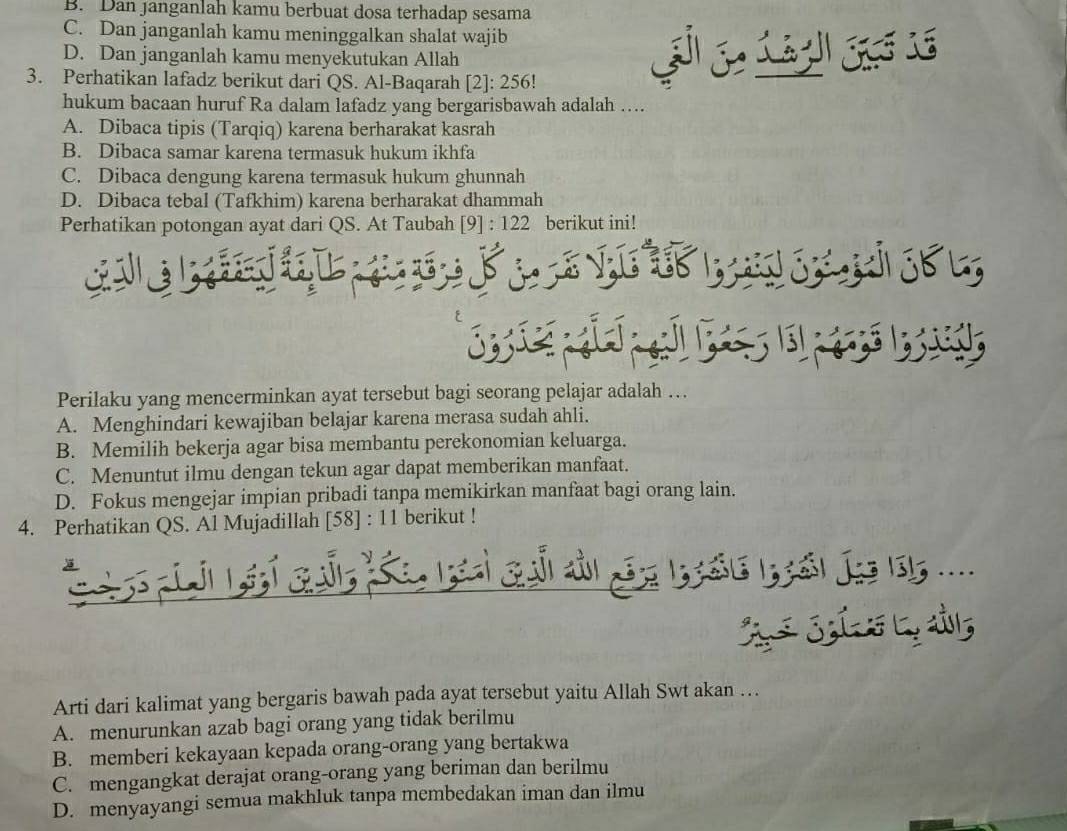 B. Dan janganlah kamu berbuat dosa terhadap sesama
C. Dan janganlah kamu meninggalkan shalat wajib
D. Dan janganlah kamu menyekutukan Allah
قَدْ تَبَيَّنَ الرُّشْدُ مِنَ الْغَيِّ
3. Perhatikan lafadz berikut dari QS. Al-Baqarah [2]: 256!
hukum bacaan huruf Ra dalam lafadz yang bergarisbawah adalah ....
A. Dibaca tipis (Tarqiq) karena berharakat kasrah
B. Dibaca samar karena termasuk hukum ikhfa
C. Dibaca dengung karena termasuk hukum ghunnah
D. Dibaca tebal (Tafkhim) karena berharakat dhammah
Perhatikan potongan ayat dari QS. At Taubah [9] : 122 berikut ini!
وَمَا كَانَ الْمُؤْمِنُوْنَ لِيَنْفِرُوْا كَاۤفَّةًۗ فَلَوْلَا نَفَرَ مِنْ كُلِّ فِرْقَةٍ مِّنْهُمْ طَاۤىِٕفَةٌ لِّيَتَفَقَّهُوْا فِى الدِّيْنِ
وَلِيُنْذِرُوْا قَوْمَهُمْ اِذَا رَجَعُوْٓا اِلَيْهِمْ لَعَلَّهُمْ يَحْذَرُوْنَ ࣖ
Perilaku yang mencerminkan ayat tersebut bagi seorang pelajar adalah ...
A. Menghindari kewajiban belajar karena merasa sudah ahli.
B. Memilih bekerja agar bisa membantu perekonomian keluarga.
C. Menuntut ilmu dengan tekun agar dapat memberikan manfaat.
D. Fokus mengejar impian pribadi tanpa memikirkan manfaat bagi orang lain.
4. Perhatikan QS. Al Mujadillah [58] : 11 berikut !
.... وَاِذَا قِيْلَ انْشُزُوْا فَانْشُزُوْا يَرْفَعِ اللّٰهُ الَّذِيْنَ اٰمَنُوْا مِنْكُمْۙ وَالَّذِيْنَ اُوْتُوا الْعِلْمَ دَرَجٰتٍۗ
وَاللّٰهُ بِمَا تَعْمَلُوْنَ خَبِيْرٌ
Arti dari kalimat yang bergaris bawah pada ayat tersebut yaitu Allah Swt akan ...
A. menurunkan azab bagi orang yang tidak berilmu
B. memberi kekayaan kepada orang-orang yang bertakwa
C. mengangkat derajat orang-orang yang beriman dan berilmu
D. menyayangi semua makhluk tanpa membedakan iman dan ilmu